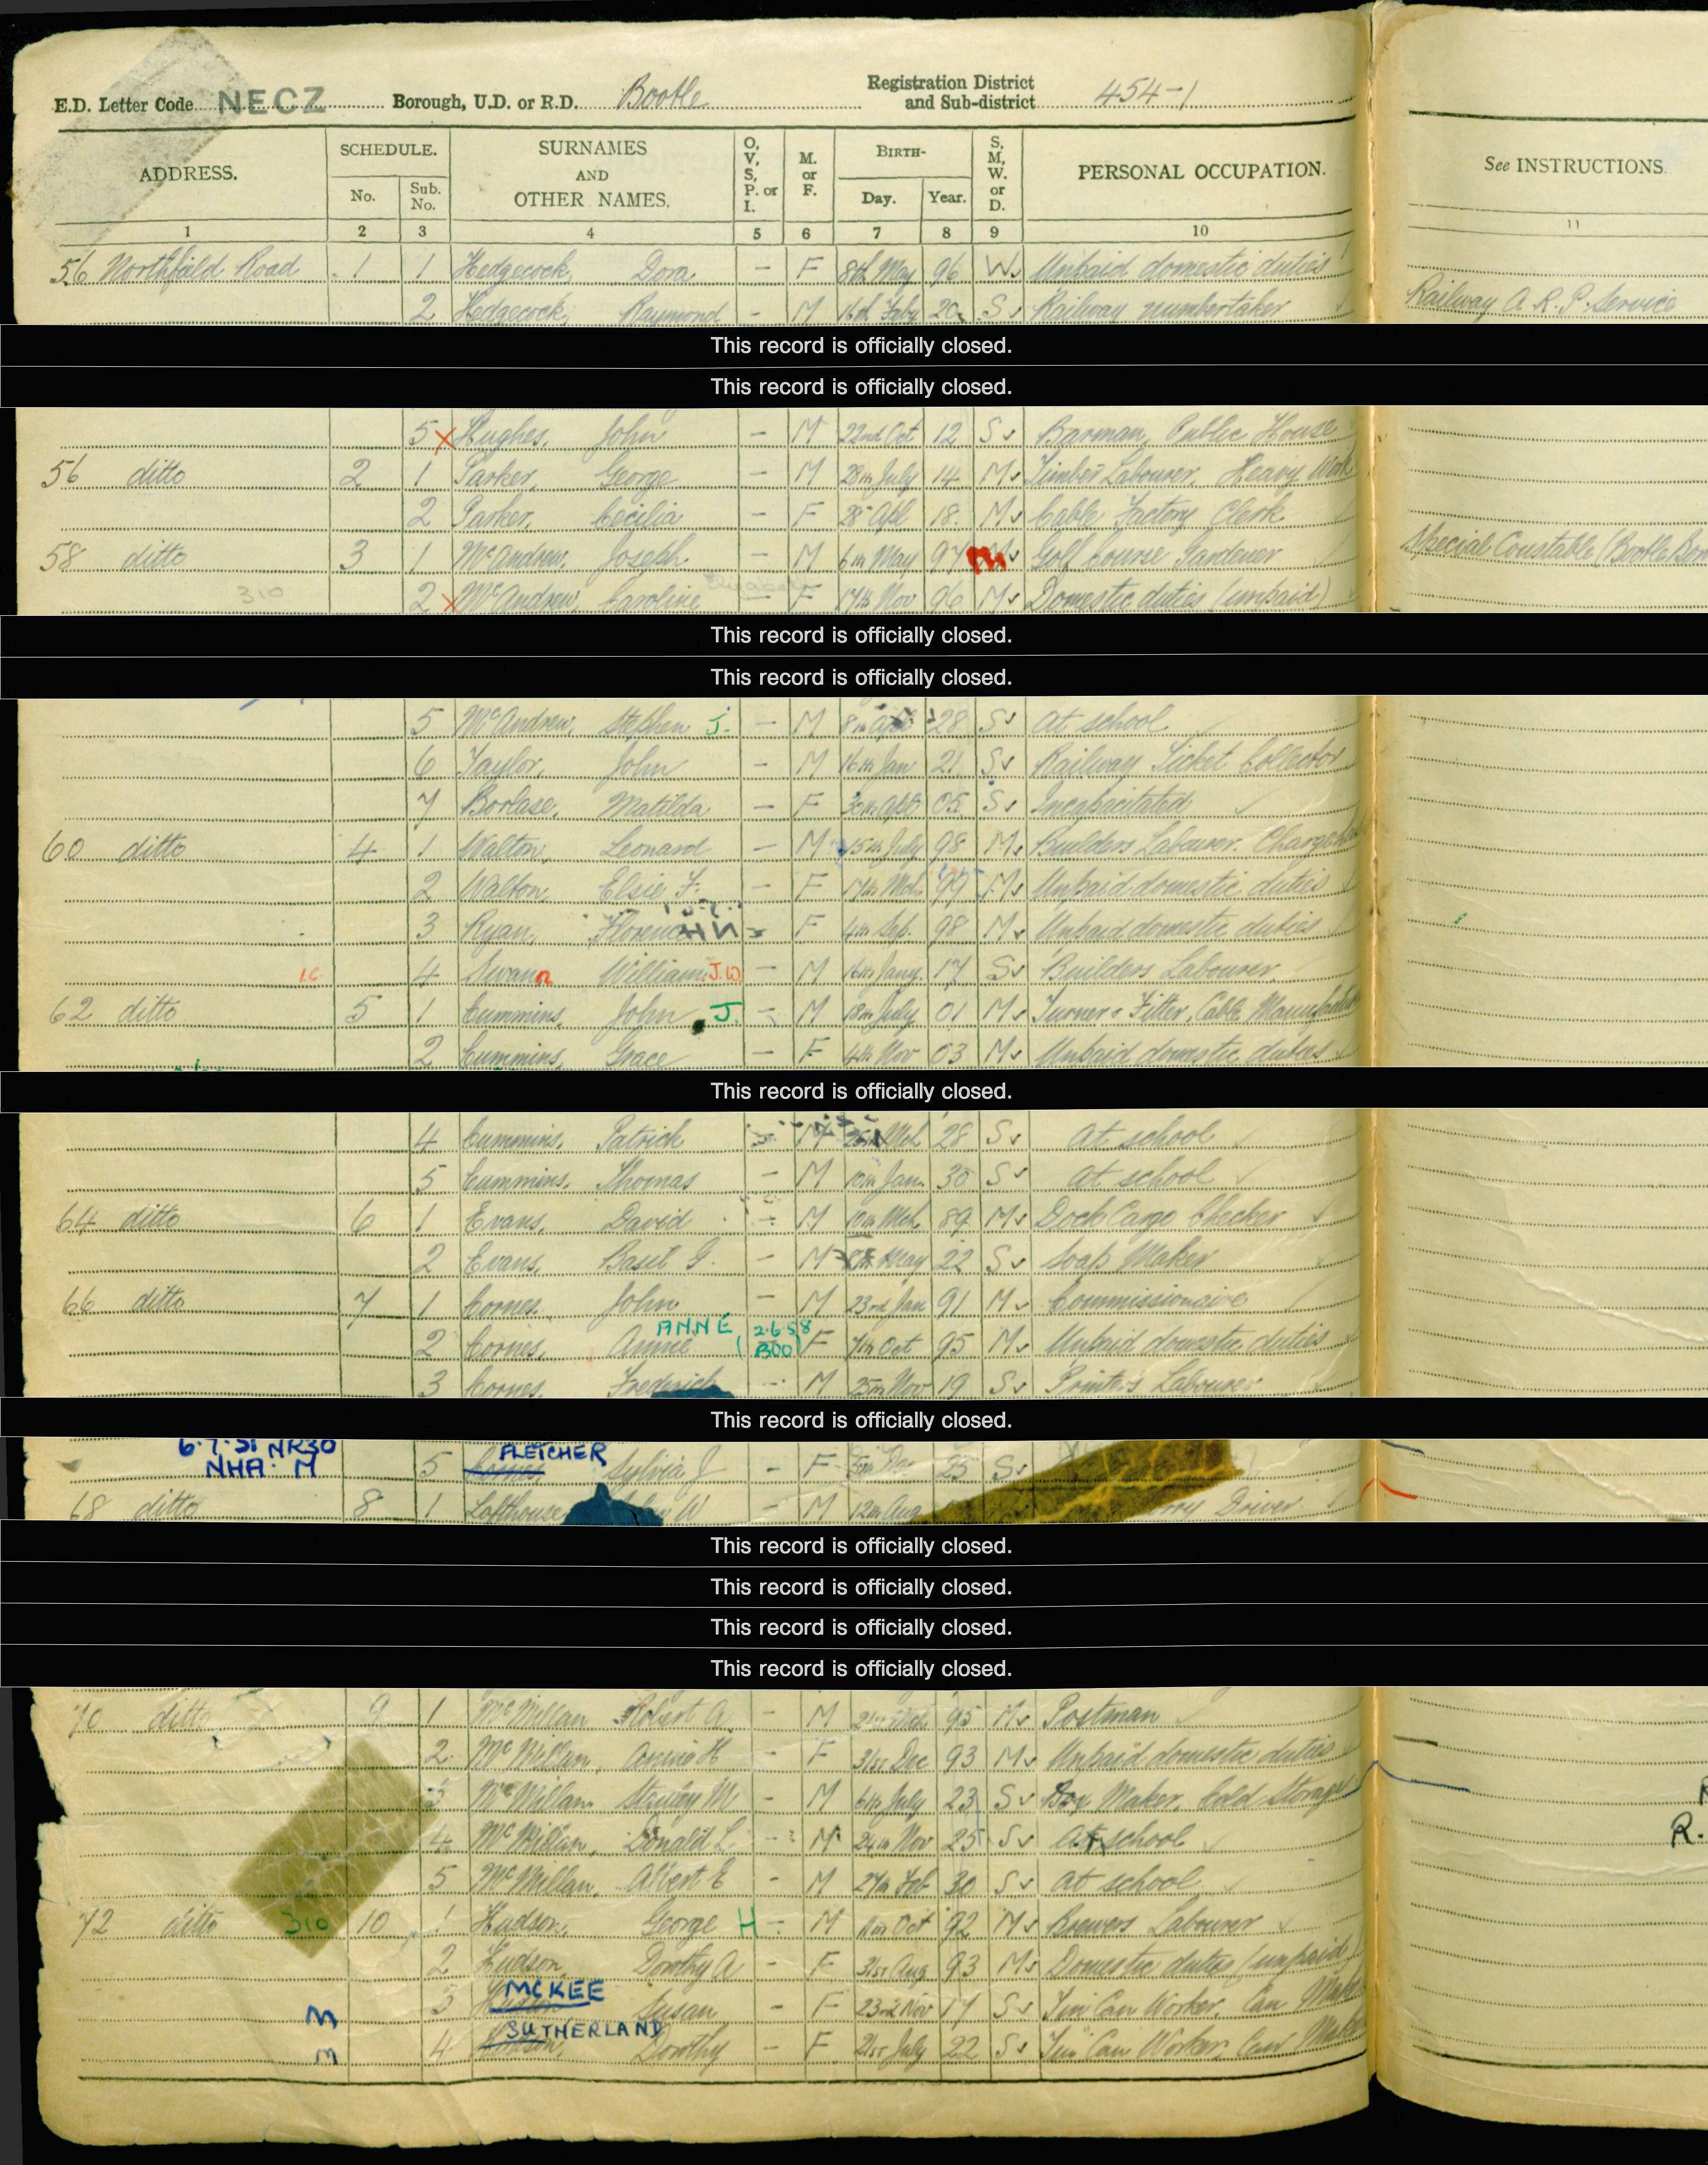 E.D. Letter Code NECZ Borough, U.D. or R.D. Bootle Registration District and Sub-district 454-1
ADDRESS. SCHEDULE. No. Sub. No. SURNAMES AND OTHER NAMES. O, V, S, P. or I. M. or F. BIRTH- Day. Year. S, M, W. or D. PERSONAL OCCUPATION. See INSTRUCTIONS
1 2 3 4 5 6 7 8 9 10 11
56 Northfield Road 1 1 Hedgecock, Dora - F 8th May 96 W Unpaid domestic duties
2 Hedgecock, Raymond - M 16th Feby 20 S Railway numbertaker Railway A.R.P. Service
This record is officially closed.
This record is officially closed.
5 x Hughes, John - M 22nd Oct 12 S Barman, Public House
56 ditto 2 1 Parker, George - M 28th July 14 M Timber Labourer, Heavy Work
2 Parker, Cecilia - F 28th Apl 18 M Cable Factory Clerk
58 ditto 3 1 McAndrew, Joseph - M 6th May 97 M Golf Course Gardener Special Constable (Bootle
310 2 x McAndrew, Caroline Elizabeth - F 17th Nov 96 M Domestic duties (unpaid)
This record is officially closed.
This record is officially closed.
5 McAndrew, Stephen J. - M 8th Apl 28 S at school
6 Taylor, John - M 16th Jan 21 S Railway Ticket Collector
7 Borlase, Matilda - F 30th Apl 05 S Incapacitated
60 ditto 4 1 Walton, Leonard - M 15th July 98 M Builders Labourer
2 Walton, Elsie F. - F 17th Mch 99 M Unpaid domestic duties
3 Ryan, Florence - F 4th Sep. 98 M Unpaid domestic duties
4 Swann William J.W - M 16th Jany. 17 S Builders Labourer
62 ditto 5 1 Cummins, John J. - M 18th July 01 M Turner & Fitter, Cable
2 Cummins, Grace - F 4th Nov 03 M Unpaid domestic duties
This record is officially closed.
4 Cummins, Patrick - M Mch 28 S at school
5 Cummins, Thomas - M 10th Jan. 30 S at school
64 ditto 6 1 Evans, David - M 10th Mch 89 M Dock Cargo Checker
2 Evans, Basil G. - M May 22 S Soap Maker
66 ditto 7 1 Cornes, John - M 23rd Jan 91 M Commissionaire
ANNE 2.6.58
2 Cornes, Annie BOO F 7th Oct 95 M Unpaid domestic duties
3 Cornes, Frederick - M 25th Nov 19 S Printer's Labourer
This record is officially closed.
6.7.51 NR30 FLETCHER
NHA M 5 Cornes Sylvia J - F 25 S
68 ditto 8 1 Lofthouse W - M 12th Aug Driver
This record is officially closed.
This record is officially closed.
This record is officially closed.
This record is officially closed.
70 ditto 9 1 McMillan Robert A. - M 95 M Postman
2 McMillan, Annie H - F 31st Dec 93 M Unpaid domestic duties
3 McMillan, Stanley M - M 6th July 23 S Box Maker, Cold Storage
4 McMillan, Donald L. - M 24th Nov 25 S at school R.
5 McMillan, Albert E - M 27th Feb 30 S at school
72 ditto 310 10 1 Hudson, George H - M Oct 92 M Brewers Labourer
2 Hudson, Dorothy A - F 31st Aug 93 M Domestic duties (unpaid)
MCKEE
M 3 Hudson Susan - F 23rd Nov 17 S Tin Can Worker, Can
SUTHERLAND
M 4 Hudson, Dorothy - F 21st July 22 S Tin Can Worker, Can